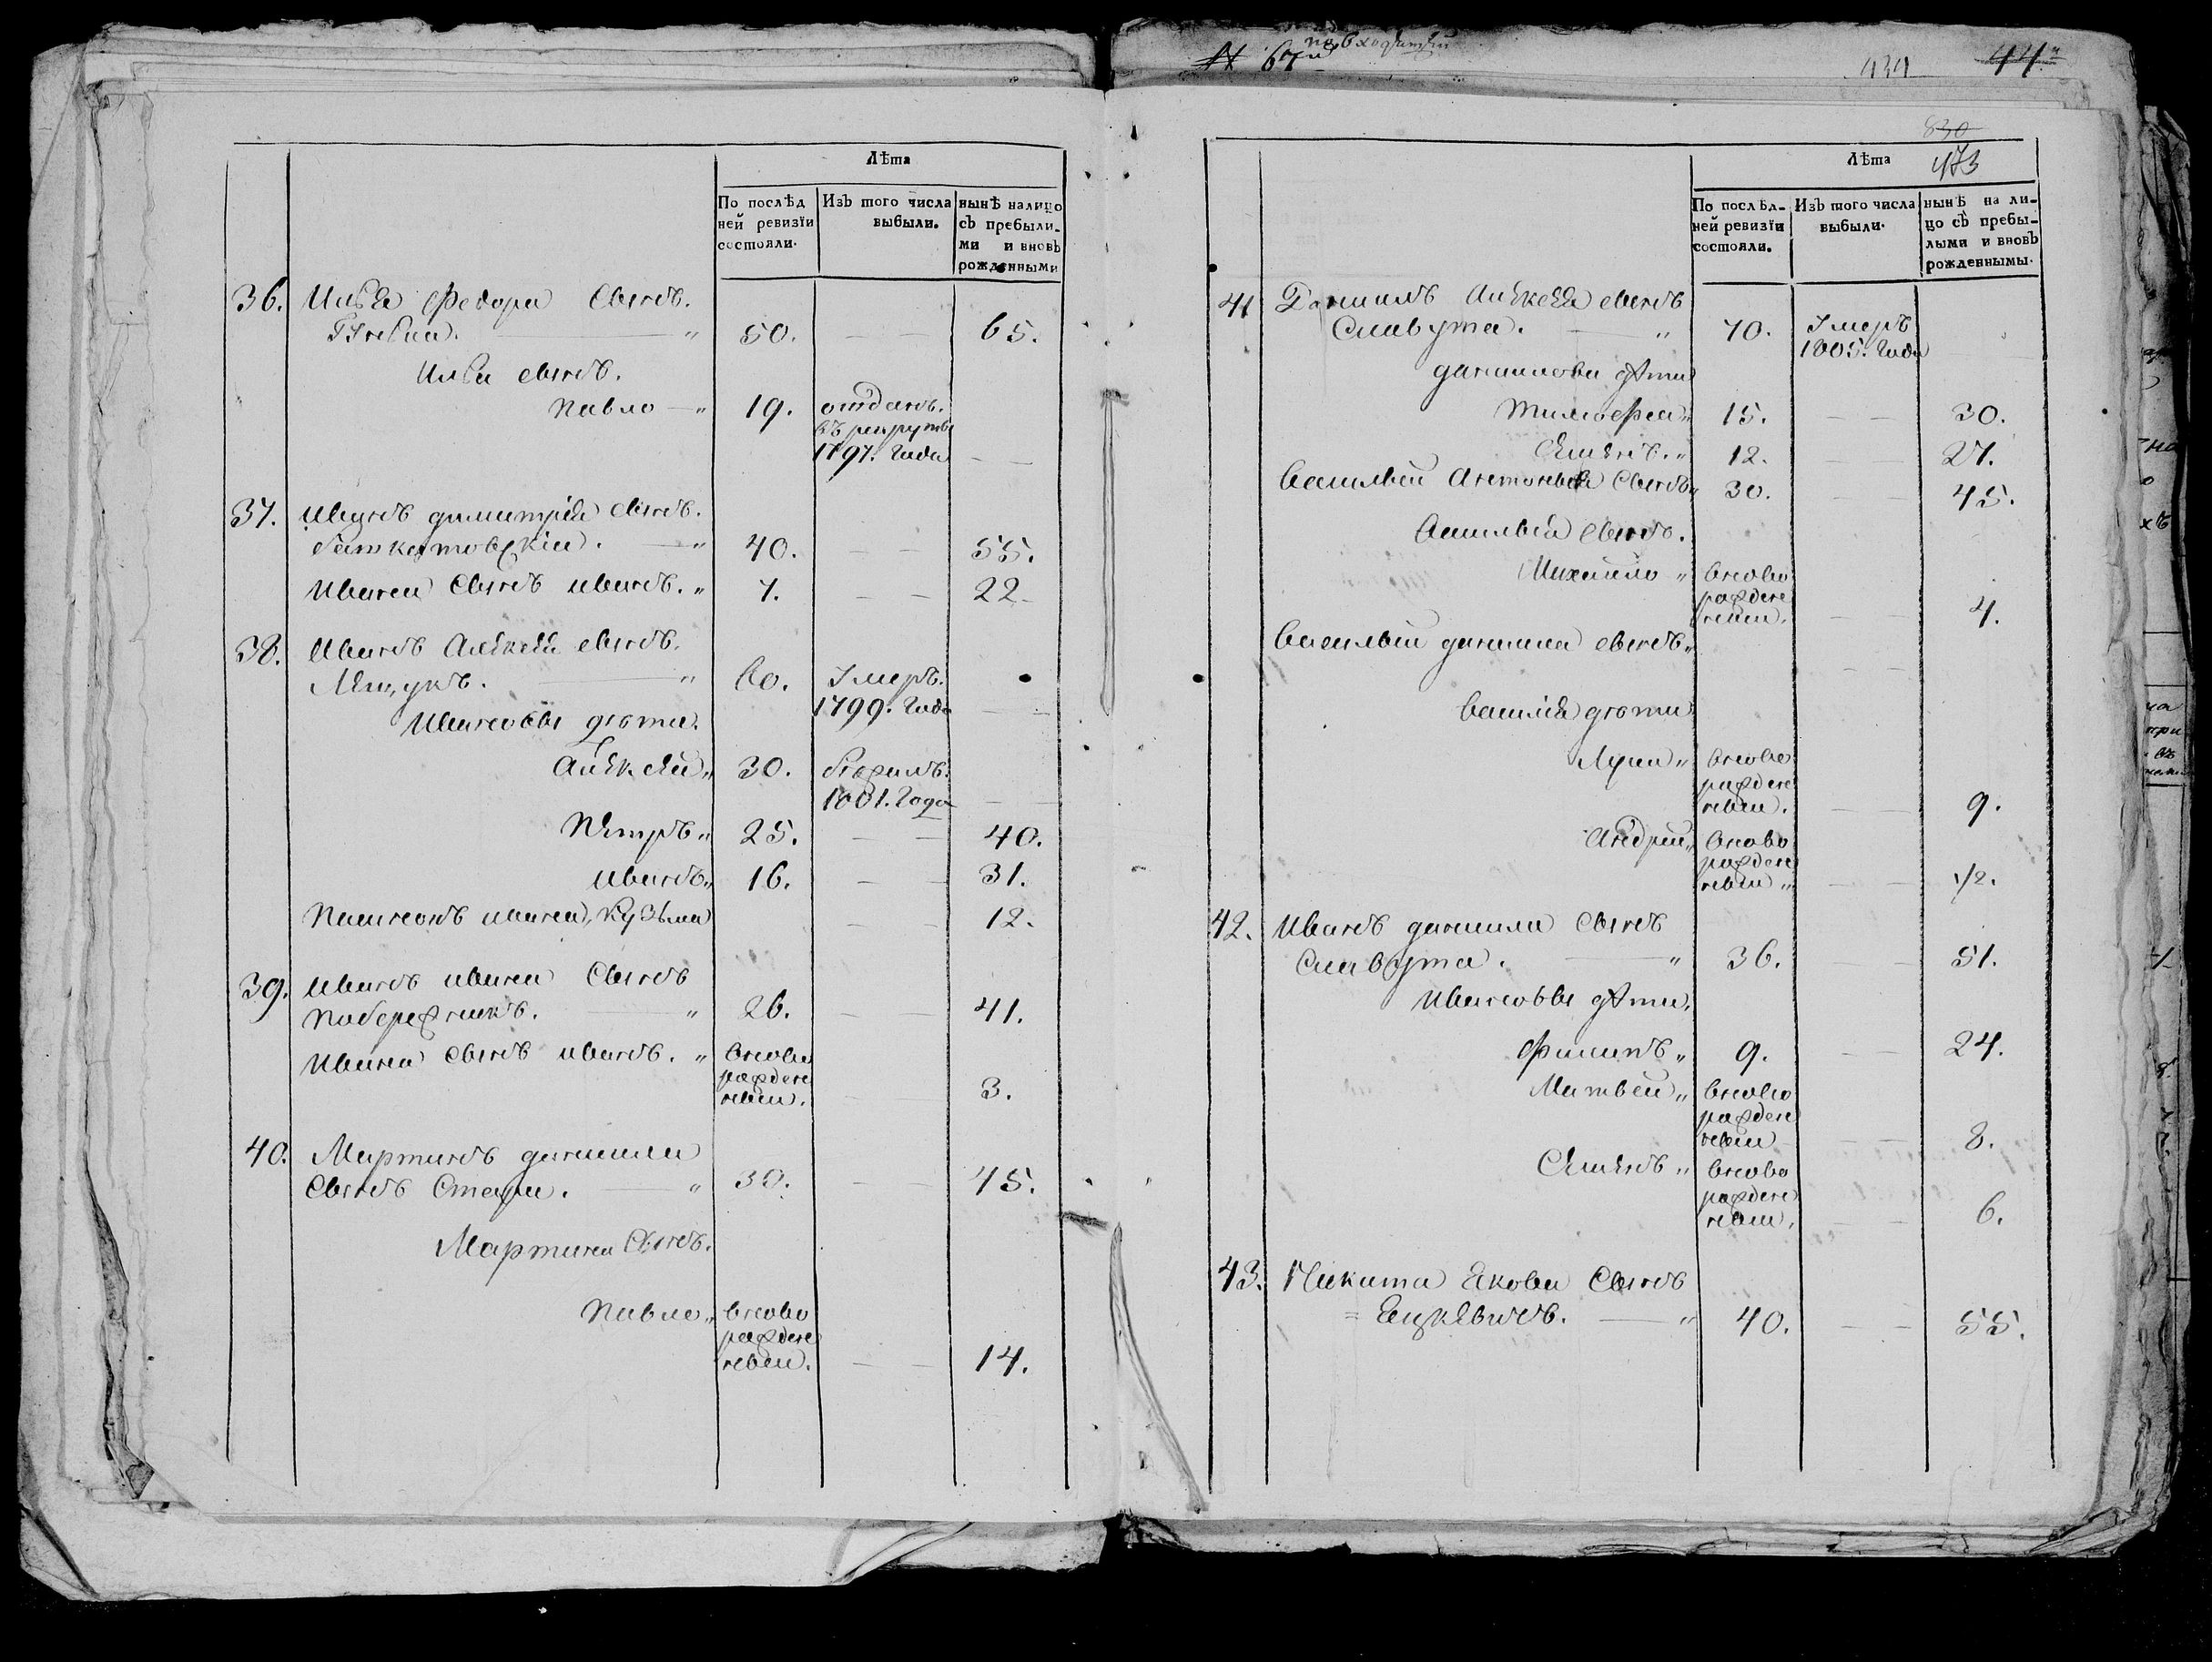 Лѣта
По послѣд
ней ревизїи
состояли.
Изъ того числа
выбыли.
нынѣ налицо
съ прибыли-
ми и вновь
рожденными
36. Илья Федора Сынъ.
50. 65.
Ильи сынъ.
Павло 19. отданъ
въ рекруты
1797. Года
37. Иванъ димитрія сынъ.
40. 55.
Ивана Сынъ иванъ. 7. 22
38. Иванъ Алѣксѣя сынъ.
Лящукъ. 60. Умеръ.
1799. Года
Ивановы дѣти.
Алѣксѣй 30. бежалъ.
1801. Года
Пѣтръ 25. 40.
иванъ 16. 31.
Пасынокъ ивана, Кузьма 12.
39. Иванъ ивана Сынъ
Побережникъ. 26. 41.
Ивана Сынъ иванъ. вново
рожден
ный. 3.
40. Мартинъ данила
Сынъ Стари. 30. 45.
Мартина Сынъ.
Павло вново
рожден
ный. 14.
№ 67й по входящій
439 44
830
473
Лѣта
По послѣд-
ней ревизїи
состояли.
Изъ того числа
выбыли.
нынѣ на ли-
цо съ прибы-
лыми и вновь
рожденными.
41 Данилъ Алѣксѣя сынъ
Славута. 70. Умеръ
1805. Года
данилови дѣти
Тимофей 15. 30.
Сѣмѣнъ. 12. 27.
Василѣй Антонья Сынъ 30. 45.
Василѣя Сынъ.
Михайло вново
рожден
ный. 4.
Василѣй данила сынъ
Василія дѣти
Лука вново
рожден
ный. 9.
Андрій вново
рожден
ный 1/2.
42. Иванъ данила Сынъ
Славута. 36. 51.
Ивановы дѣти.
Филипъ 9. 24.
Матвей вново
рожден
ный 8.
Сѣмѣнъ вново
рожден
ный. 6.
43. Никита Якова Сынъ
Яцкѣвичъ. 40. 55.